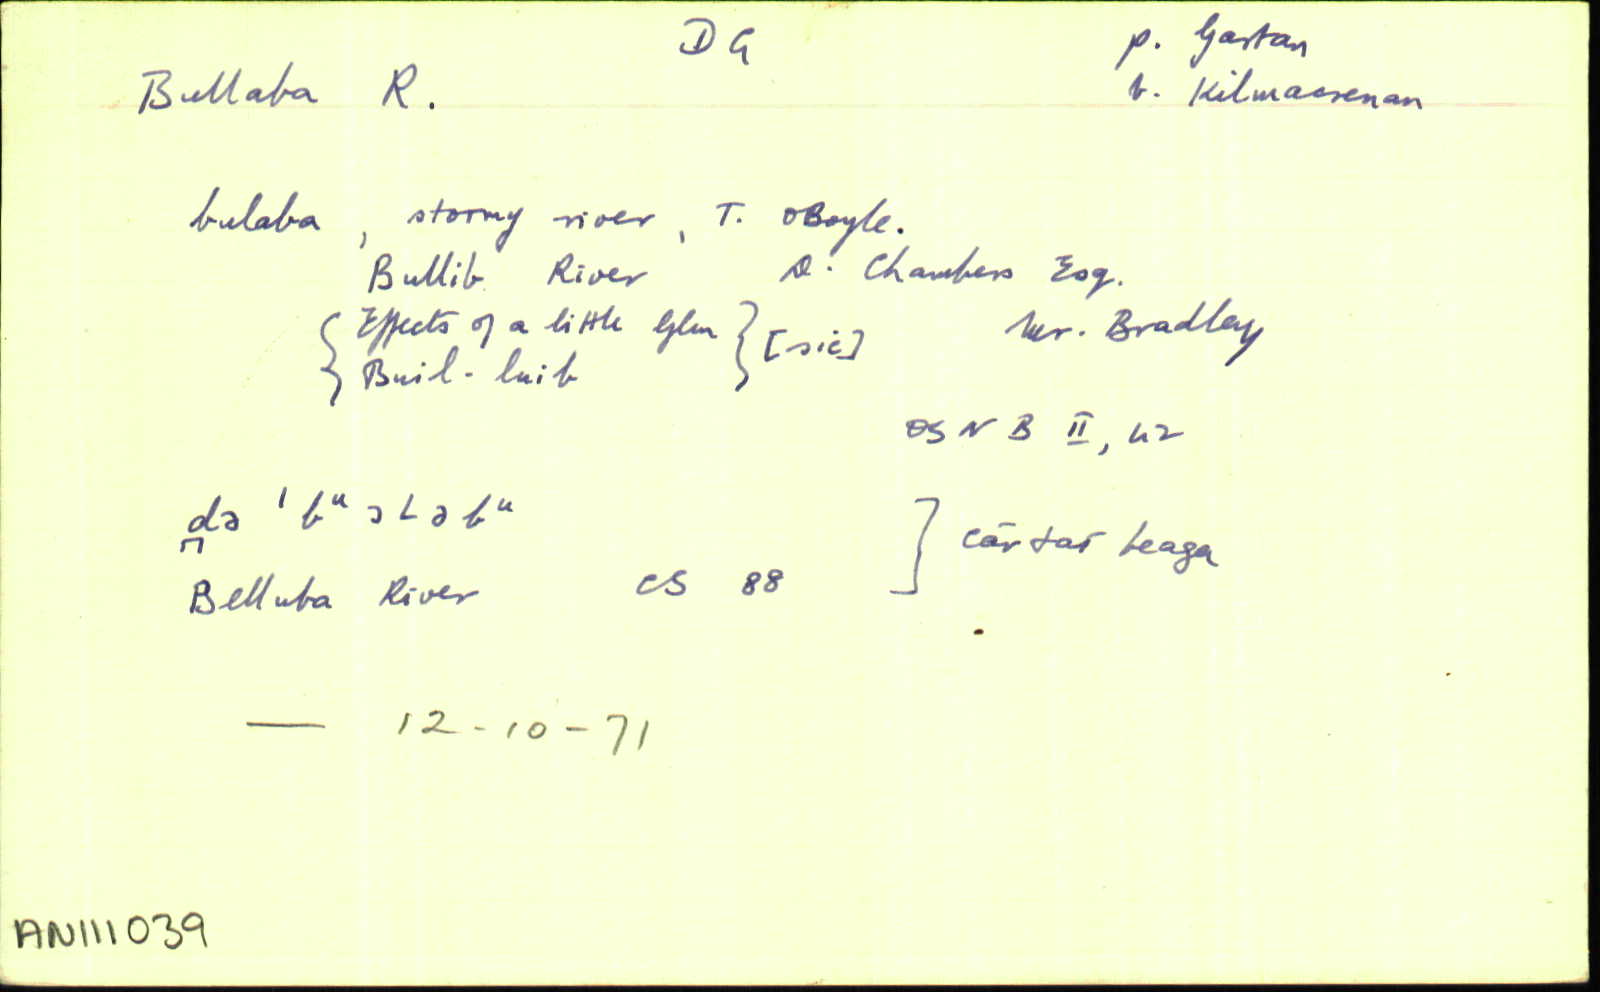 DG
p. Gartan
Bullaba R.
b. Kilmacrenan
bulaba, stormy river, T. OBoyle.
Bullib River D. Chambers Esq.
{ Effects of a little Glen } [sic] Mr. Bradley
Buil-luib
OSNB II, 42
d̪ə ˈbᵚəLəbᵚ ] cártaí beaga
Belluba River CS 88
— 12-10-71
AN111039